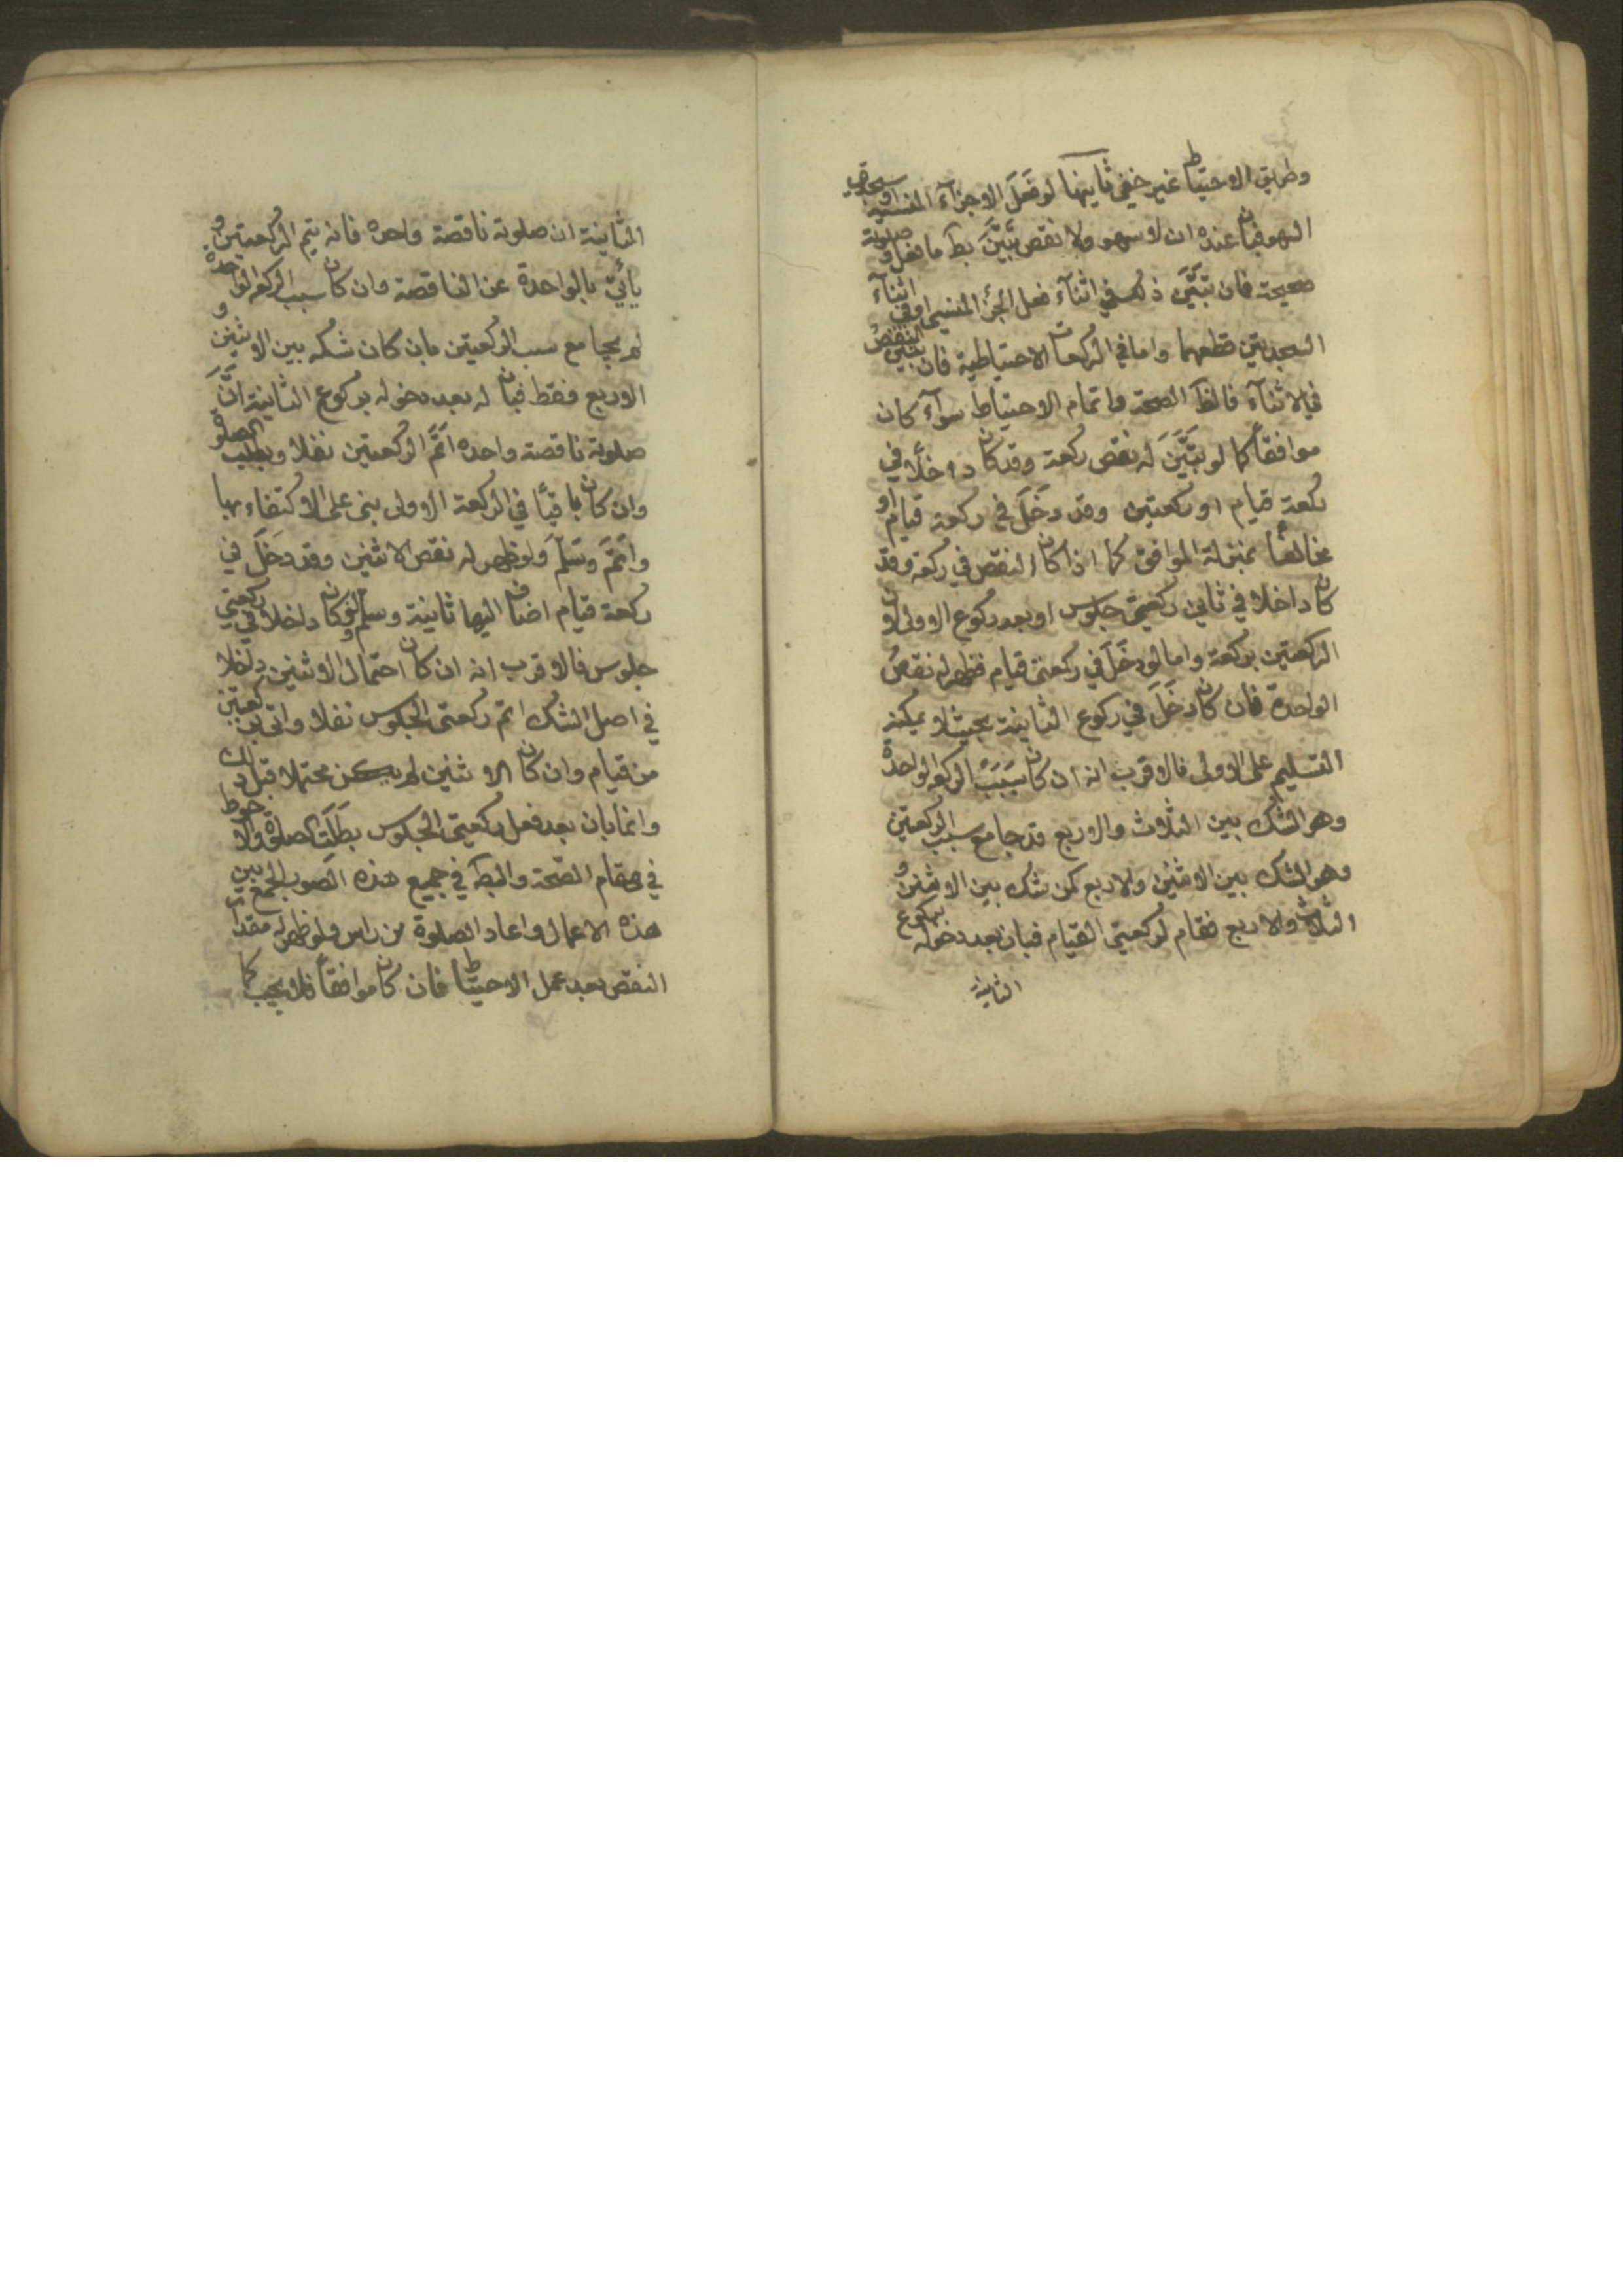 وطريق الاحتياط غير خفي ثانيها لو فَعَلَ الاجزآء المنسية او سجدتي
السهو فبان عنده ان لا سهو ولا نقص تبيَّنَ بطَ ما فعل و صلوته
صحيحة فان تبيَّنَ ذلك في اثنآء فعل الجزء المنسي او في اثنآء
السجدتين قطعهما واما في الركعات الاحتياطية فان تبين النقصُ
في الاثنآء فالظَ الصحة واتمام الاحتياط سوآء كان
موافقاً كما لو تبيَّنَ له نقص ركعة وقد كان داخلًا في
ركعة قيام او ركعتين وقد دَخَلَ في ركعة قيام او
مخالفاً بمنزلة الموافق كما اذا كان النقص في ركعة وقد
كان داخلا في ثاني ركعتي جلوس او بعد ركوع الاولى لان
الركعتين بركعة واما لو دخَلَ في ركعتي قيام فظهر له نقصُ
الواحدة فان كان دخَلَ في ركوع الثانية بحيث لا يمكنه
التسليم على الاولى فالاقرب انه ان كان سَبَبُ الركعة الواحدة
وهو الشك بين الثلاث والاربع قد جامع سبب الركعتين
وهو الشك بين الاثنين والاربع كمن شك بين الاثنين و
الثلاث والاربع فقام لركعتي القيام فبان بعد دخوله بركوع
الثانية
الثانية ان صلوته ناقصة واحدة فانه يتم الركعتين و
يأتي بالواحدة عن الناقصة وان كان سبب الركعة الواحدة
لم يجامع سبب الركعتين بان كان شكه بين الاثنين و
الاربع فقط فبان له بعد دخوله بركوع الثانية انَّ
صلوته ناقصة واحدة اتَمَّ الركعتين نفلا وبطلت الصلوة
وان كان باقياً في الركعة الاولى بنى على الاكتفاء بها
واتَمَّ وسَلَّمَ ولو ظهر له نقص الاثنين وقد دخَلَ في
ركعة قيام اضاف اليها ثانية وسلّم ولو كان داخلا في ركعتي
جلوس فالاقرب انه ان كان احتمال الاثنين داخلا
في اصل الشك اتمّ ركعتي الجلوس نفلا واتى بركعتين
من قيام وان كان الاثنين لم يكن محتملا قبل ذلك
وانما بان بعد فعل ركعتي الجلوس بطَلَت الصلوة والاحوط
في مقام الصّحة والبطَ في جميع هذه الصور الجمع بين
هذه الاعمال واعاد الصلوة من راس ولو ظهر له مقدار
النقص بعد عمل الاحتياط فان كان موافقاً فلا يجب كما